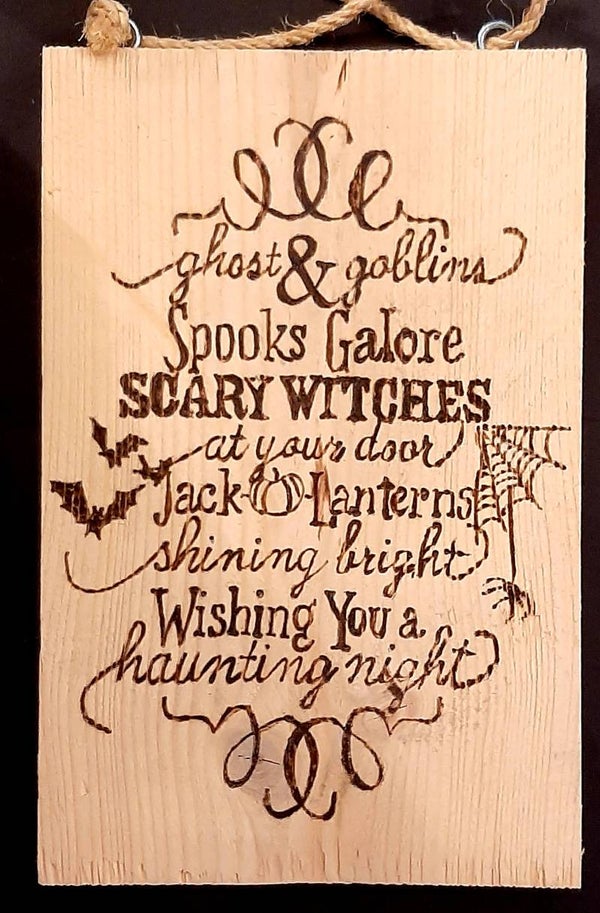 ghost & goblins
Spooks Galore
SCARY WITCHES
at your door
Jack-O-Lanterns
shining bright
Wishing You a
haunting night